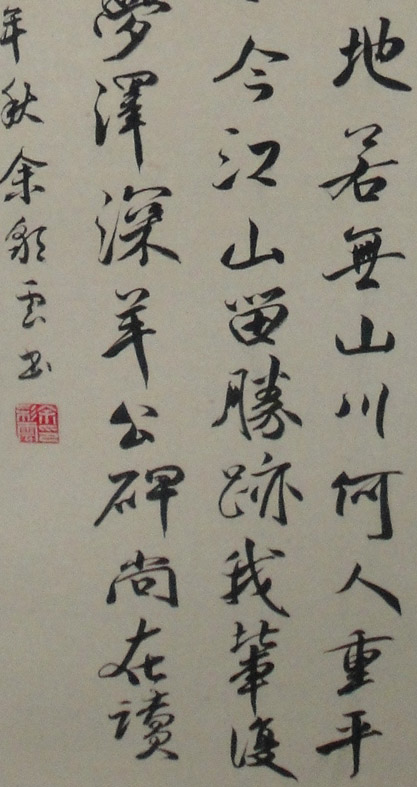 地若無山川何人重平
今江山留勝跡我輩復
夢澤深羊公碑尚在讀
年秋余雲書